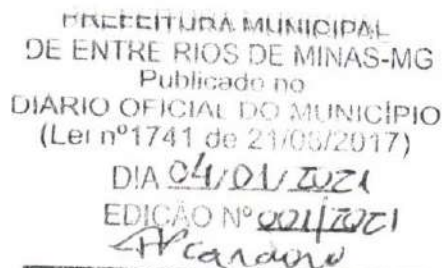 PREFEITURA MUNICIPAL
DE ENTRE RIOS DE MINAS-MG
Publicado no
DIÁRIO OFICIAL DO MUNICÍPIO
(Lei nº1741 de 21/03/2017)
DIA 04/01/2021
EDIÇÃO Nº 001/2021